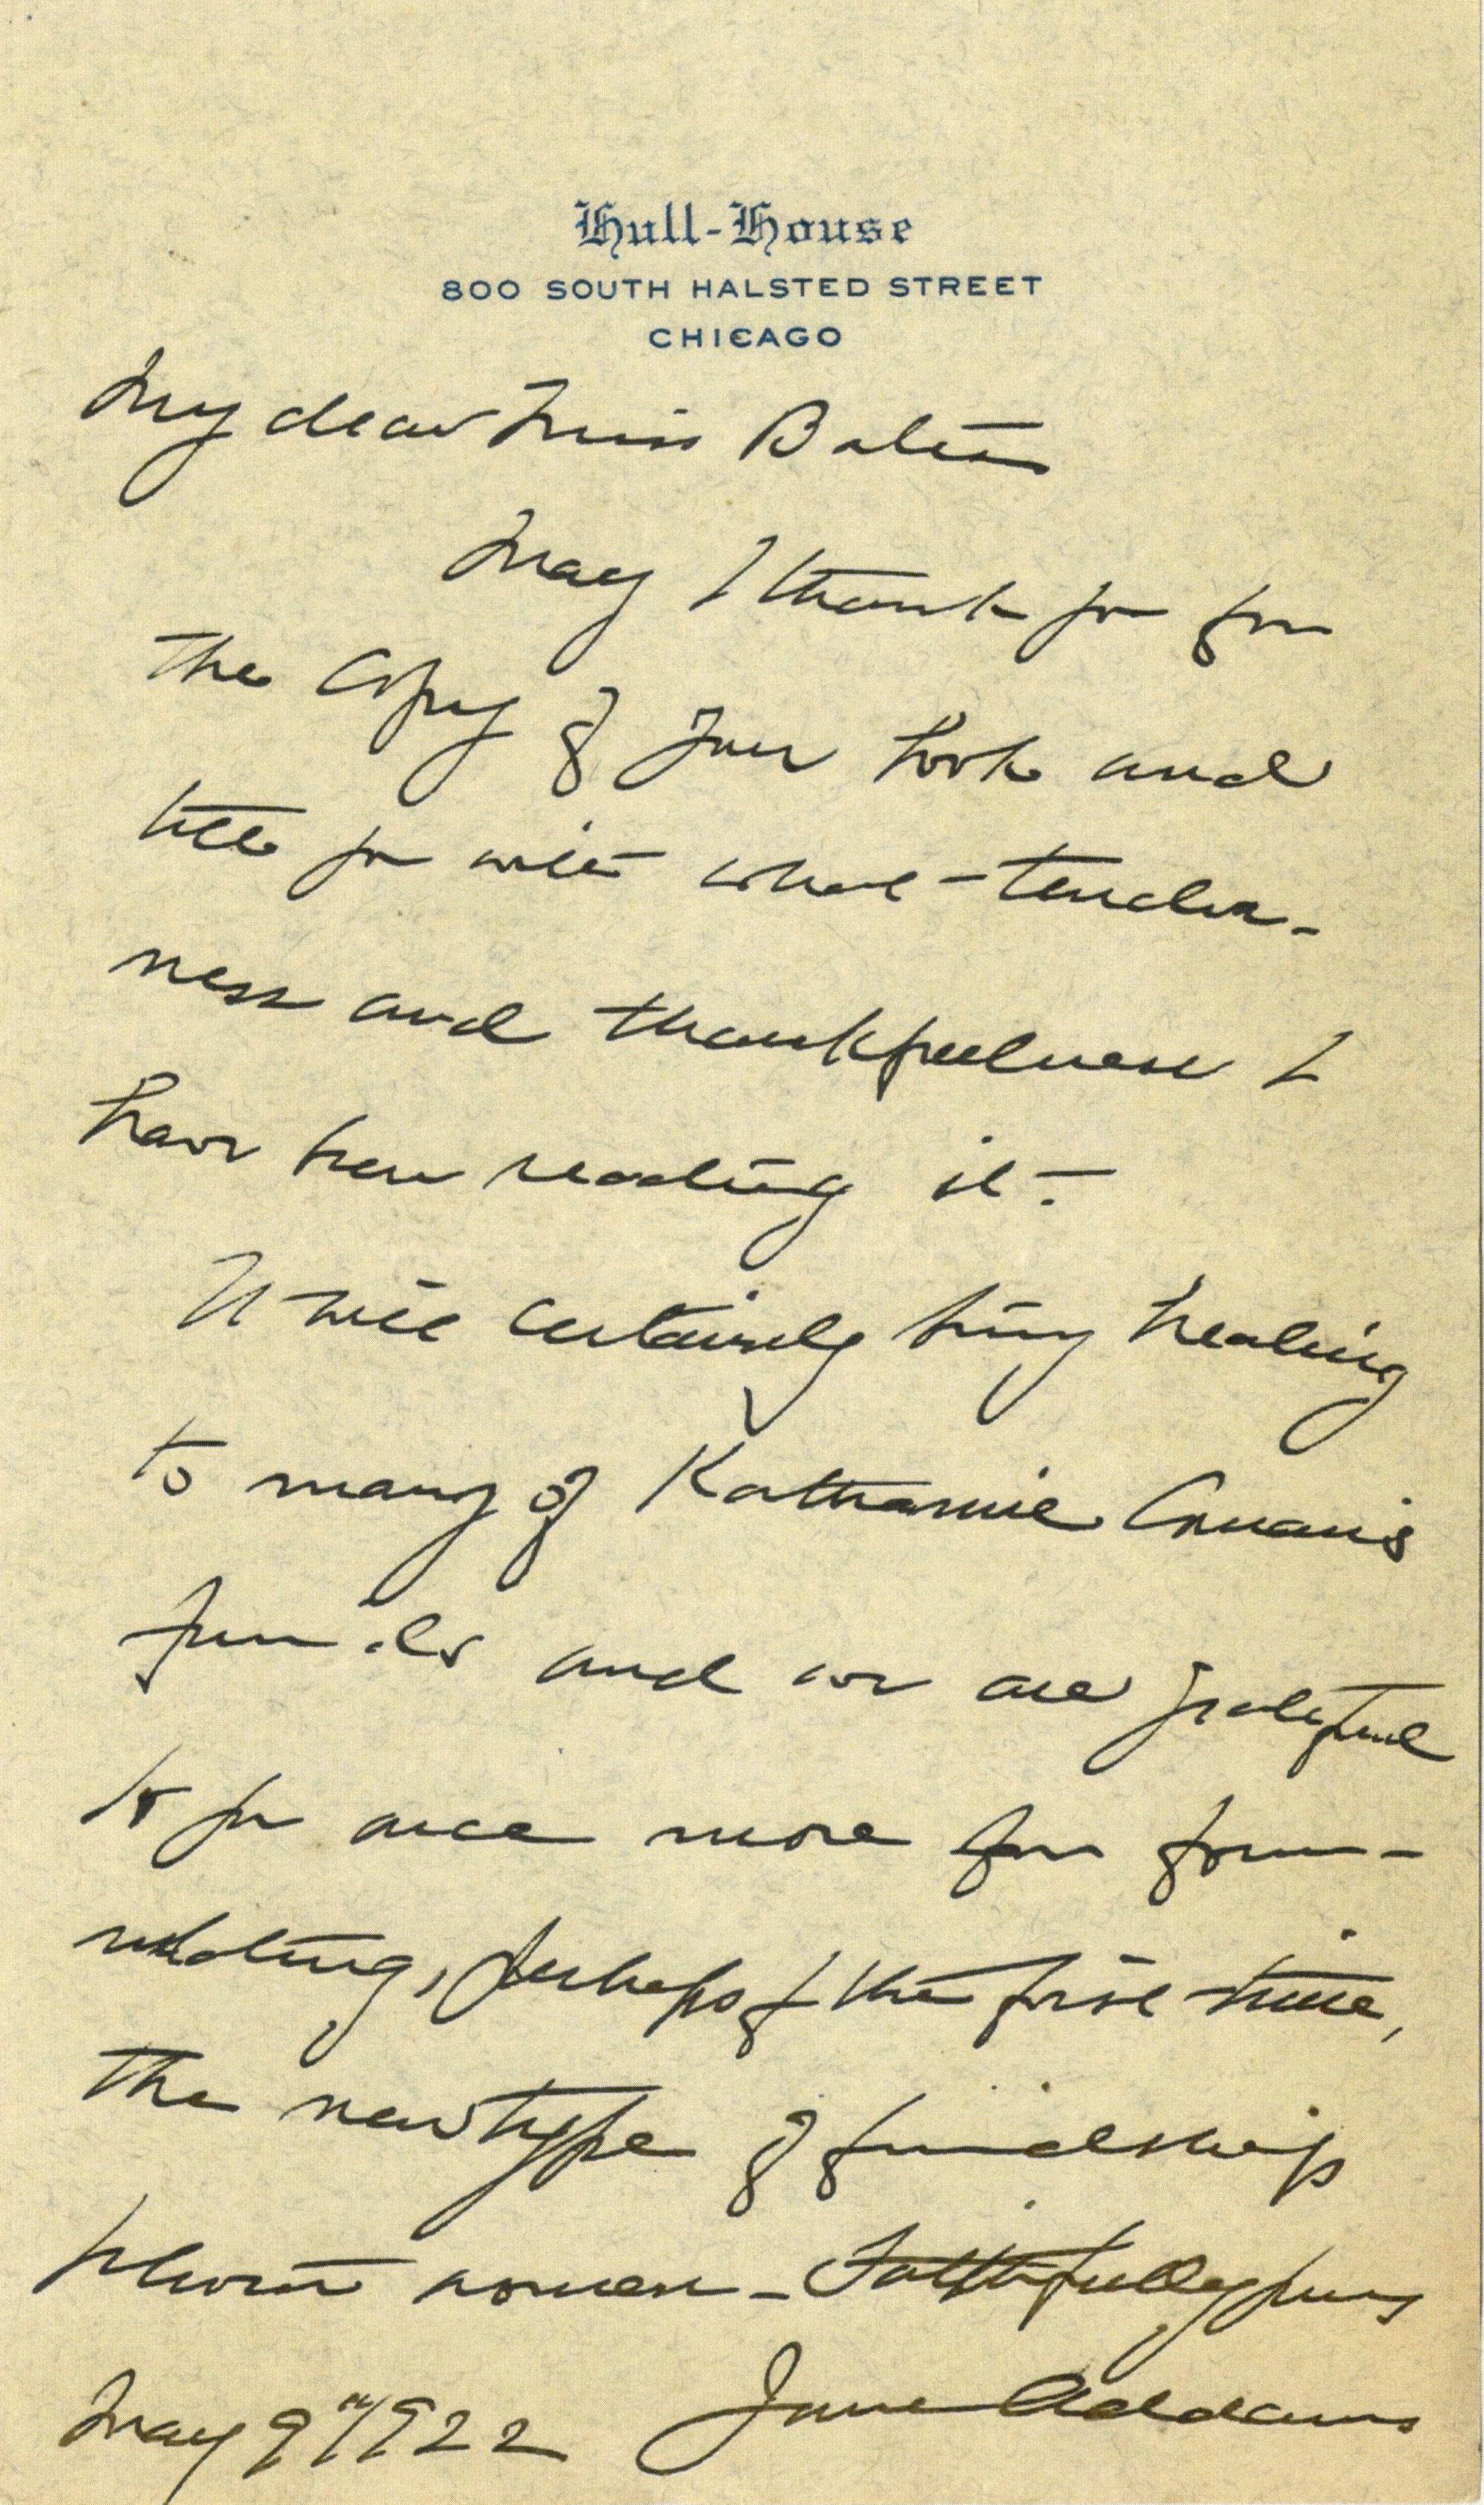 Hull-House
800 SOUTH HALSTED STREET
CHICAGO
My dear Miss Bates
May I thank you for
the copy of your book and
tell you with what tender-
ness and thankfulness I
have been reading it.
It will certainly bring healing
to many of Katharine Coman's
friends and we are grateful
to you once more for form-
ulating, perhaps for the first time,
the new type of friendship
between women - Faithfully yours
May 9" 1922 Jane Addams